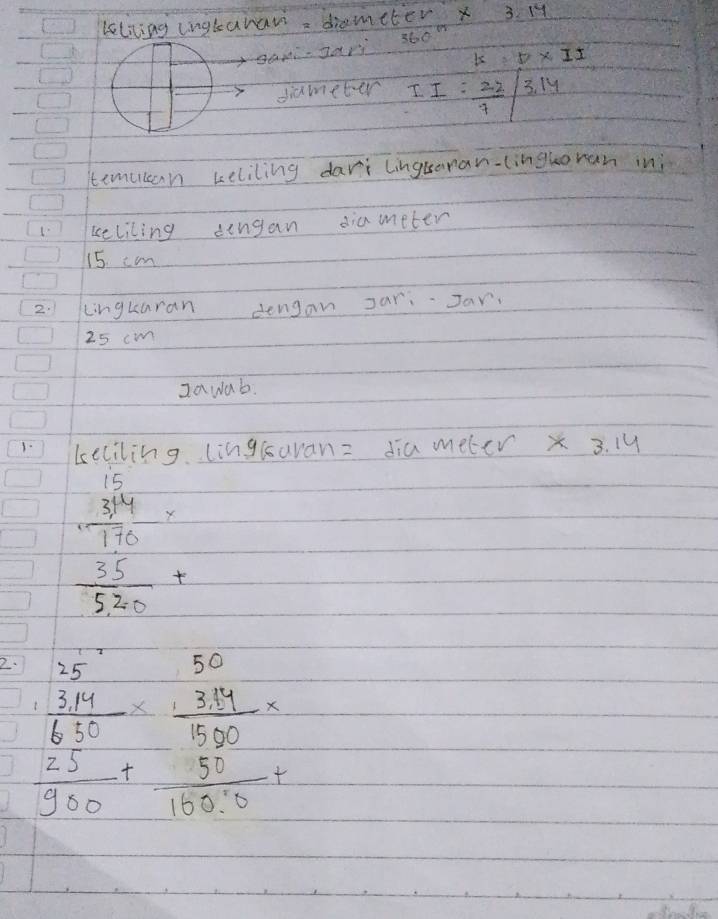 keliling lingkaran = diameter x 3.14
360°
gari-jari
K = D x II
diameter II = 22/7 / 3,14
temukan keliling dari lingkaran-lingkaran ini
1. keliling dengan diameter
15 cm
2.) lingkaran dengan jari-jari
25 cm
Jawab.
1. keliling lingkaran = diameter x 3.14
15
3,14 x
170
35 +
5.20
2. 25 50
3,14 x 3,14 x
650 1500
25 + 50 +
900 160.0